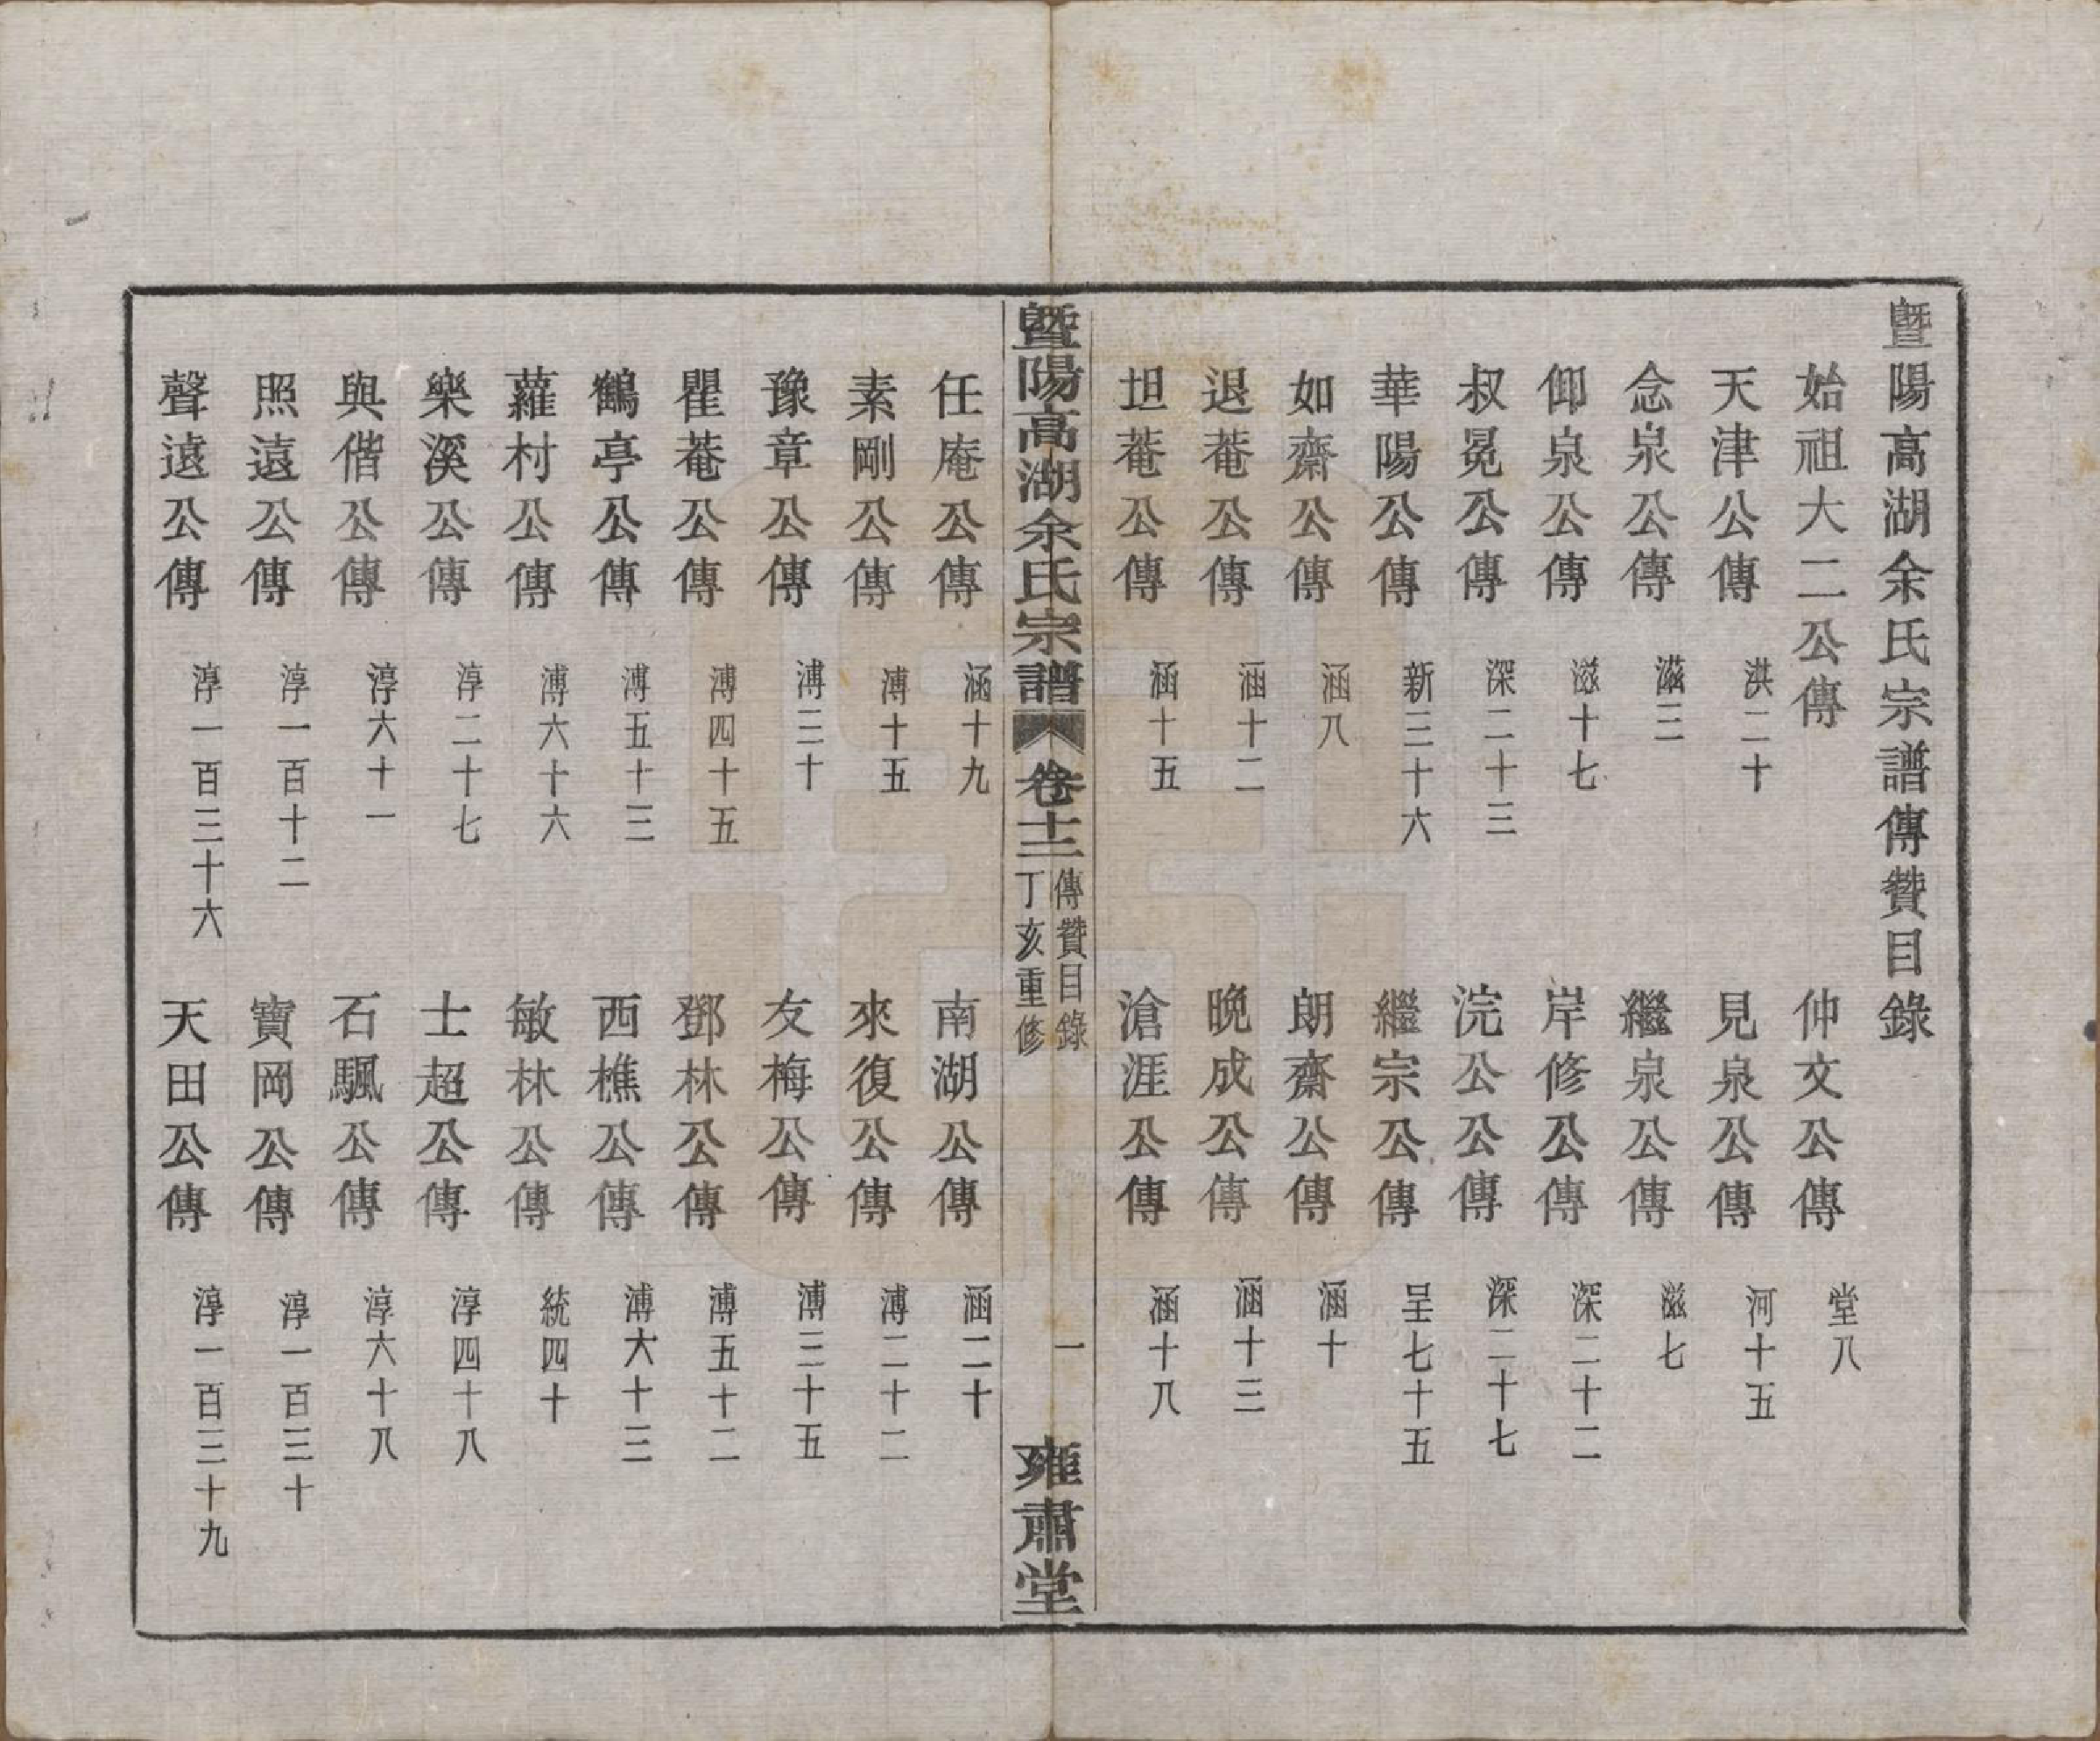 暨陽高湖余氏宗譜傳贊目錄
始祖大二公傳　仲文公傳　堂八
天津公傳　洪二十　見泉公傳　河十五
念泉公傳　滋三　繼泉公傳　滋七
仰泉公傳　滋十七　岸修公傳　深二十二
叔冕公傳　深二十三　浣公公傳　深二十七
華陽公傳　新三十六　繼宗公傳　呈七十五
如齋公傳　涵八　朗齋公傳　涵十
退菴公傳　涵十二　晚成公傳　涵十三
坦菴公傳　涵十五　滄涯公傳　涵十八
暨陽高湖余氏宗譜　卷十二　傳贊目錄　丁亥重修　一　雍肅堂
任庵公傳　涵十九　南湖公傳　涵二十
素剛公傳　溥十五　來復公傳　溥二十二
豫章公傳　溥三十　友梅公傳　溥三十五
瞿菴公傳　溥四十五　鄧林公傳　溥五十二
鶴亭公傳　溥五十三　西樵公傳　溥六十三
蘿村公傳　溥六十六　敏林公傳　統四十
樂溪公傳　淳二十七　士超公傳　淳四十八
與偕公傳　淳六十一　石颿公傳　淳六十八
照遠公傳　淳一百十二　寶岡公傳　淳一百三十
聲遠公傳　淳一百三十六　天田公傳　淳一百三十九